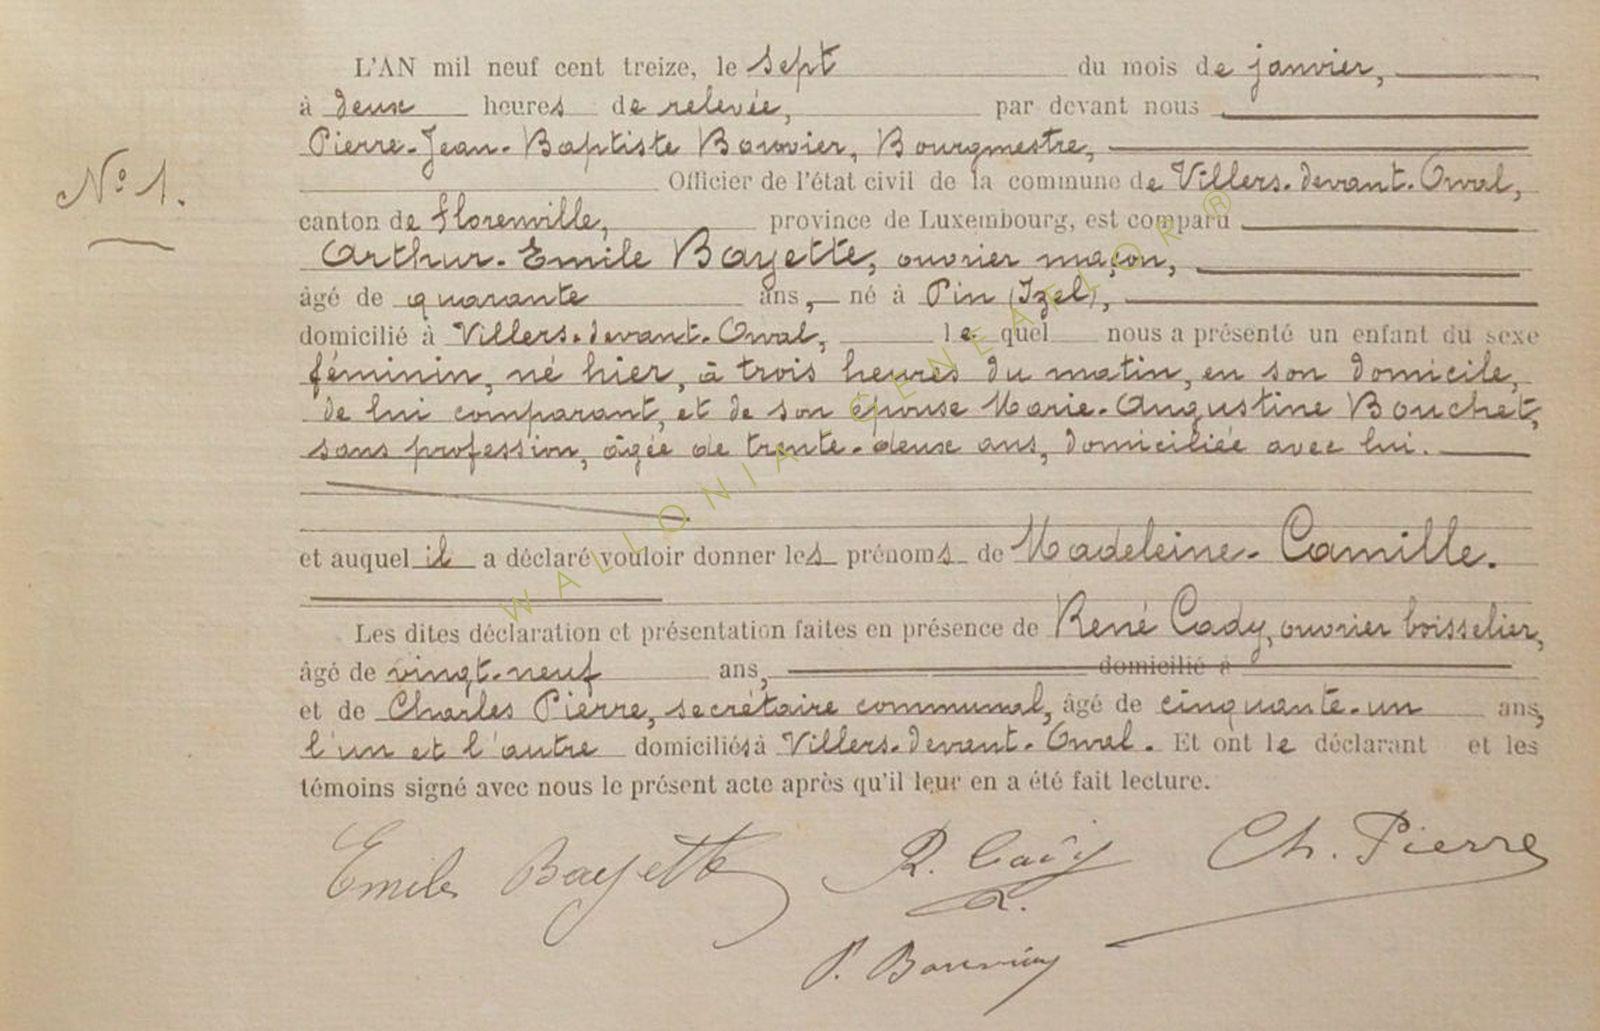 L'AN mil neuf cent treize, le sept du mois de janvier,
à deux heures de relevée, par devant nous
Pierre-Jean-Baptiste Bouvier, Bourgmestre,
N° 1.
Officier de l'état civil de la commune de Villers-devant-Orval,
canton de Florenville, province de Luxembourg, est comparu
Arthur-Emile Bayette, ouvrier maçon,
âgé de quarante ans, né à Pin (Izel),
domicilié à Villers-devant-Orval, lequel nous a présenté un enfant du sexe
féminin, né hier, à trois heures du matin, en son domicile,
de lui comparant, et de son épouse Marie-Augustine Bouchet,
sans profession, âgée de trente-deux ans, domiciliée avec lui.
et auquel il a déclaré vouloir donner les prénoms de Madeleine-Camille.
Les dites déclaration et présentation faites en présence de René Cady, ouvrier boisselier,
âgé de vingt-neuf ans, domicilié à
et de Charles Pierre, secrétaire communal, âgé de cinquante-un ans,
l'un et l'autre domiciliés à Villers-devant-Orval. Et ont le déclarant et les
témoins signé avec nous le présent acte après qu'il leur en a été fait lecture.
Emile Bayette R. Cady Ch. Pierre
P. Bouvier
WALLONIA-GENEALOR ®